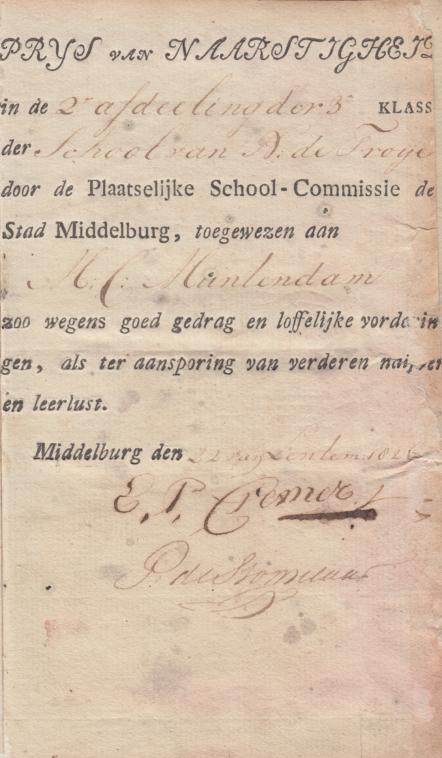 PRYS VAN NAARSTIGHEID
in de 2e afdeeling der 3e KLASS
der School van A. de Troye
door de Plaatselijke School-Commissie de
Stad Middelburg, toegewezen aan
M. C. Muntendam
zoo wegens goed gedrag en loffelijke vorderin
gen, als ter aansporing van verderen
en leerlust.
Middelburg den 22 van Septem.
E. P. Cremer
P. de